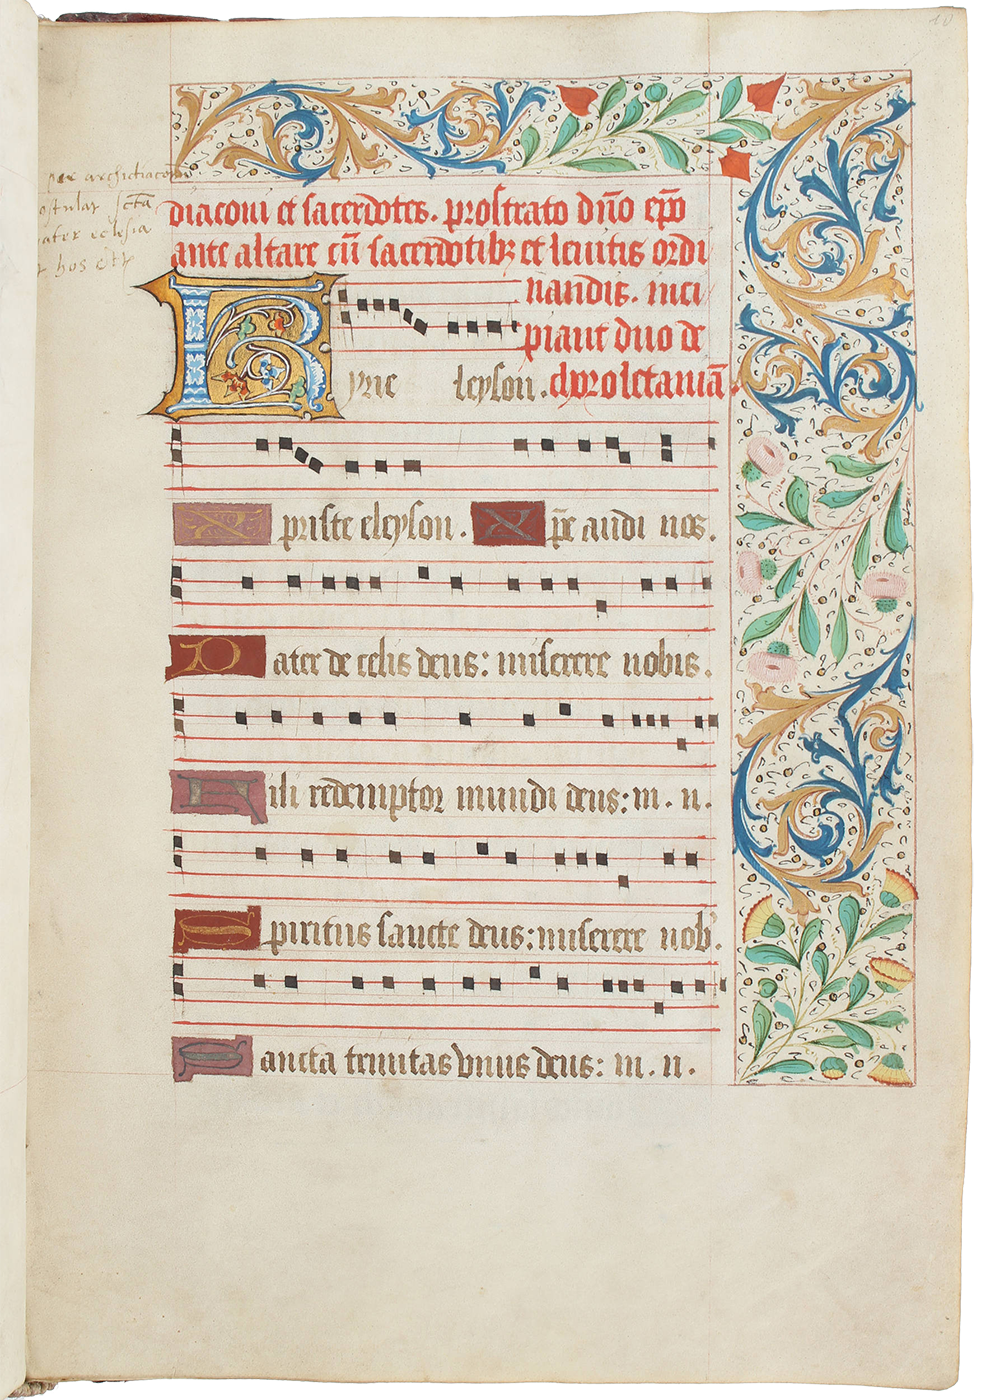 10
per archidiacon
ostular scta
ater eclesia
hos ett
diaconi et sacerdotes. prostrato dño ep̃o
ante altare cũ sacerdotibꝫ et leuitis ordi
nandis. inci
piant duo de
Kyrie leyson. choro letaniã
Xpriste eleyson. Xp̃e audi nos.
Pater de celis deus: miserere nobis.
Fili redemptor mundi deus: m. n.
Spiritus sancte deus: miserere nob'.
Sancta trinitas vnus deus: m. n.